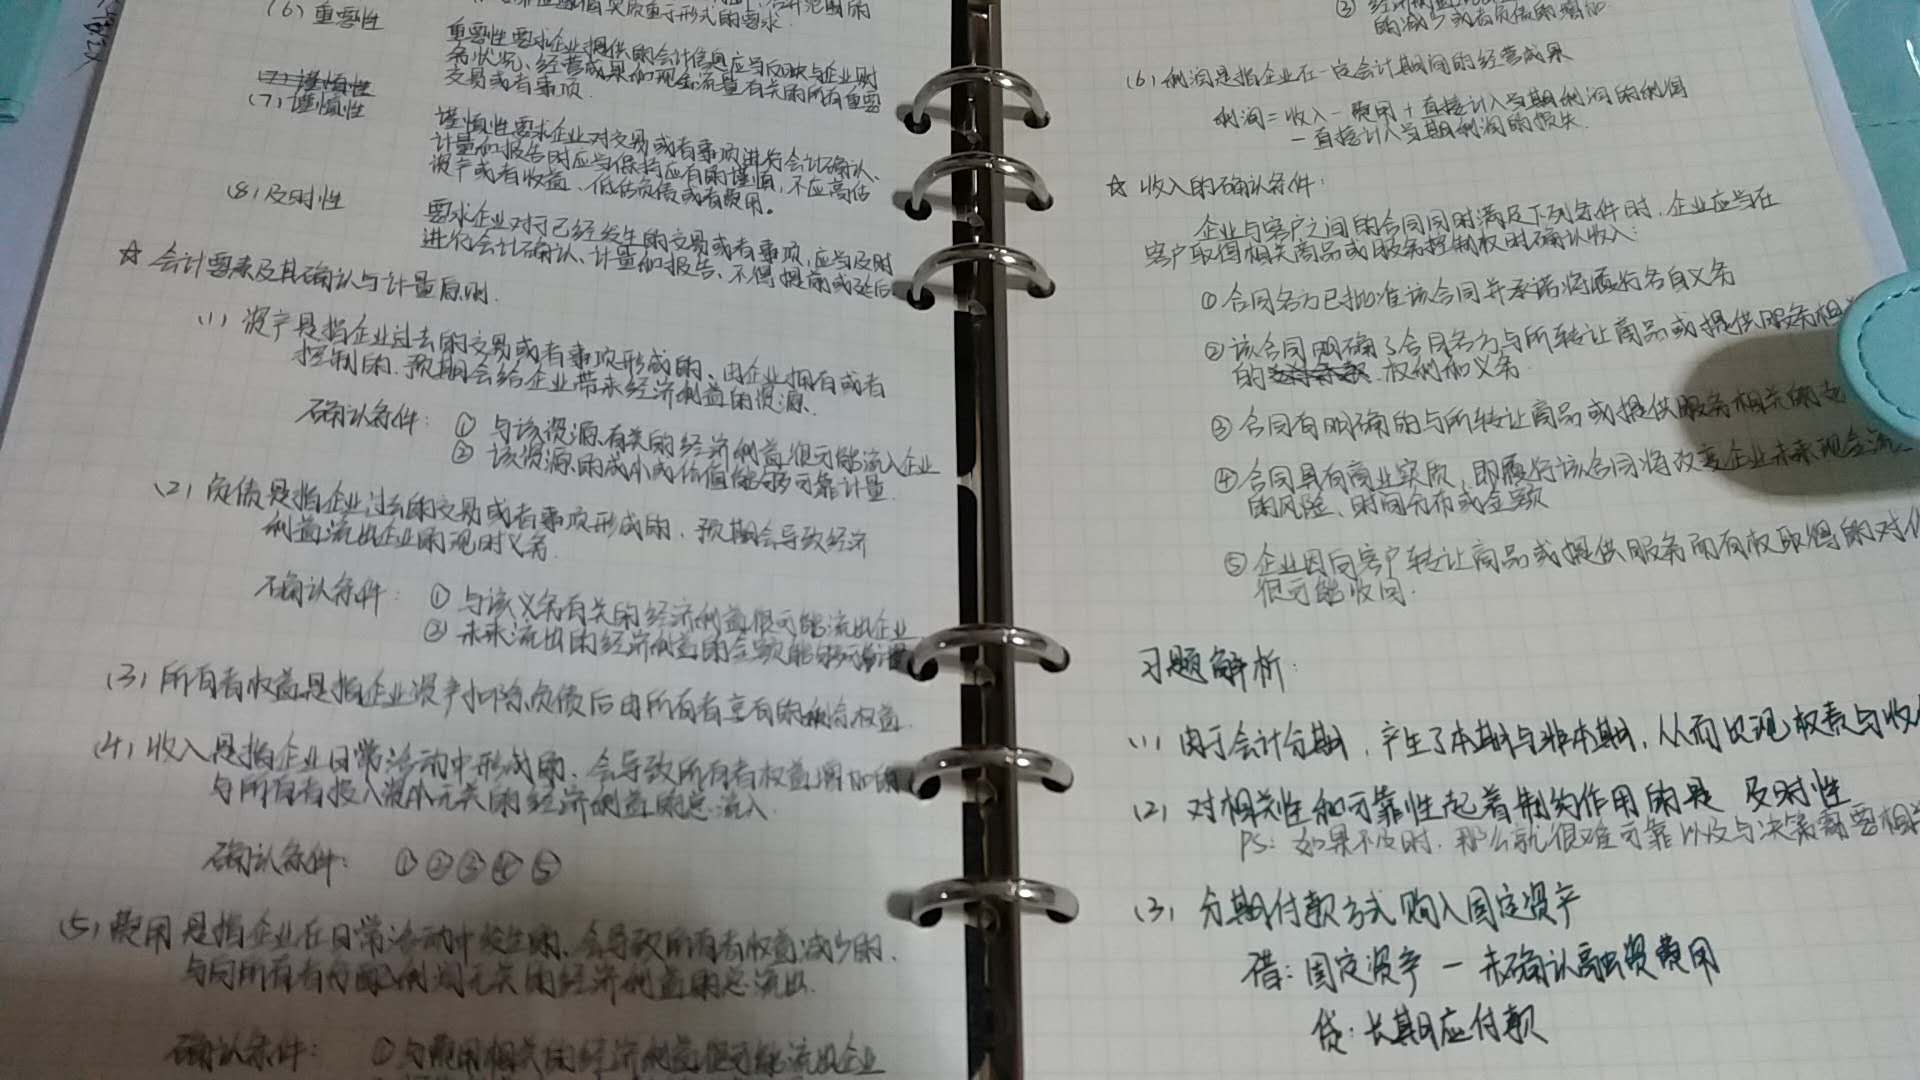 (6) 重要性
重要性要求企业提供的会计信息应当反映与企业财
务状况、经营成果和现金流量有关的所有重要
交易或者事项.
(7) 谨慎性
(7) 谨慎性
谨慎性要求企业对交易或者事项进行会计确认、
计量和报告时应当保持应有的谨慎,不应高估
资产或者收益、低估负债或者费用。
(8) 及时性
要求企业对于已经发生的交易或者事项,应当及时
进行会计确认、计量和报告、不得提前或延后
☆ 会计要素及其确认与计量原则.
(1) 资产是指企业过去的交易或者事项形成的、由企业拥有或者
控制的.预期会给企业带来经济利益的资源.
确认条件: ① 与该资源有关的经济利益很可能流入企业
② 该资源的成本或价值能够可靠计量.
(2) 负债是指企业过去的交易或者事项形成的、预期会导致经济
利益流出企业的现时义务.
确认条件: ① 与该义务有关的经济利益很可能流出企业
② 未来流出的经济利益的金额能够可靠计量
(3) 所有者权益是指企业资产扣除负债后由所有者享有的剩余权益.
(4) 收入是指企业日常活动中形成的、会导致所有者权益增加的
与所有者投入资本无关的经济利益的总流入.
确认条件: ①②③④⑤
(5) 费用是指企业在日常活动中发生的、会导致所有者权益减少的.
与向所有者分配利润无关的经济利益的总流出.
确认条件: ① 与费用相关的经济利益很可能流出企业
的减少或者负债的增加
(6) 利润是指企业在一定会计期间的经营成果
利润=收入-费用+直接计入当期利润的利得
-直接计入当期利润的损失.
☆ 收入的确认条件:
企业与客户之间的合同同时满足下列条件时.企业应当在
客户取得相关商品或服务控制权时确认收入:
① 合同各方已批准该合同并承诺将履行各自义务
② 该合同明确了合同各方与所转让商品或提供服务相关
的 权利和义务.
③ 合同有明确的与所转让商品或提供服务相关的支
④ 合同具有商业实质,即履行该合同将改变企业未来现金流
的风险、时间分布或金额
⑤ 企业因向客户转让商品或提供服务而有权取得的对价
很可能收回.
习题解析:
(1) 由于会计分期,产生了本期与非本期,从而出现权责与收
(2) 对相关性和可靠性起着制约作用的是 及时性
PS: 如果不及时.那么就很难可靠以及与决策需要相关
(3) 分期付款方式购入固定资产
借: 固定资产 - 未确认融资费用
贷: 长期应付款